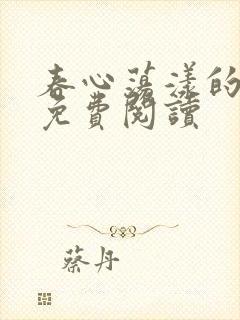 春心蕩漾的
免費閱讀
蔡丹